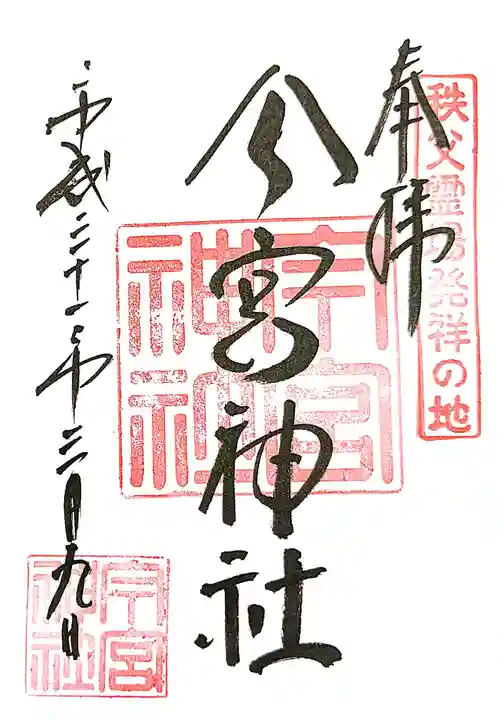 秩父霊場発祥の地
奉拝
今宮神社
今宮神社
平成二十一年三月九日
今宮神社